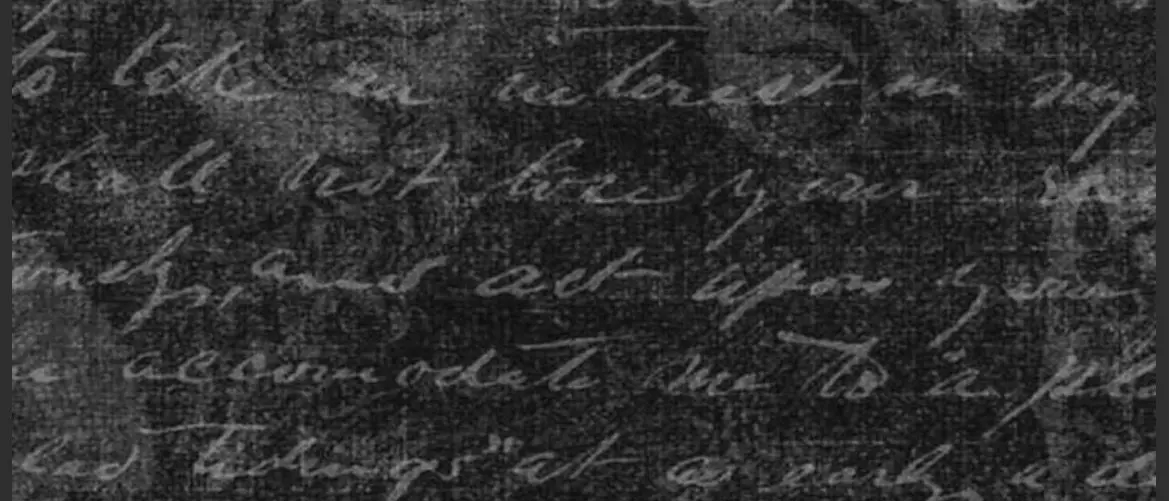 to take an interest in my
shall not loose your
and act upon your
accomodate me to a
tidings" at as early a